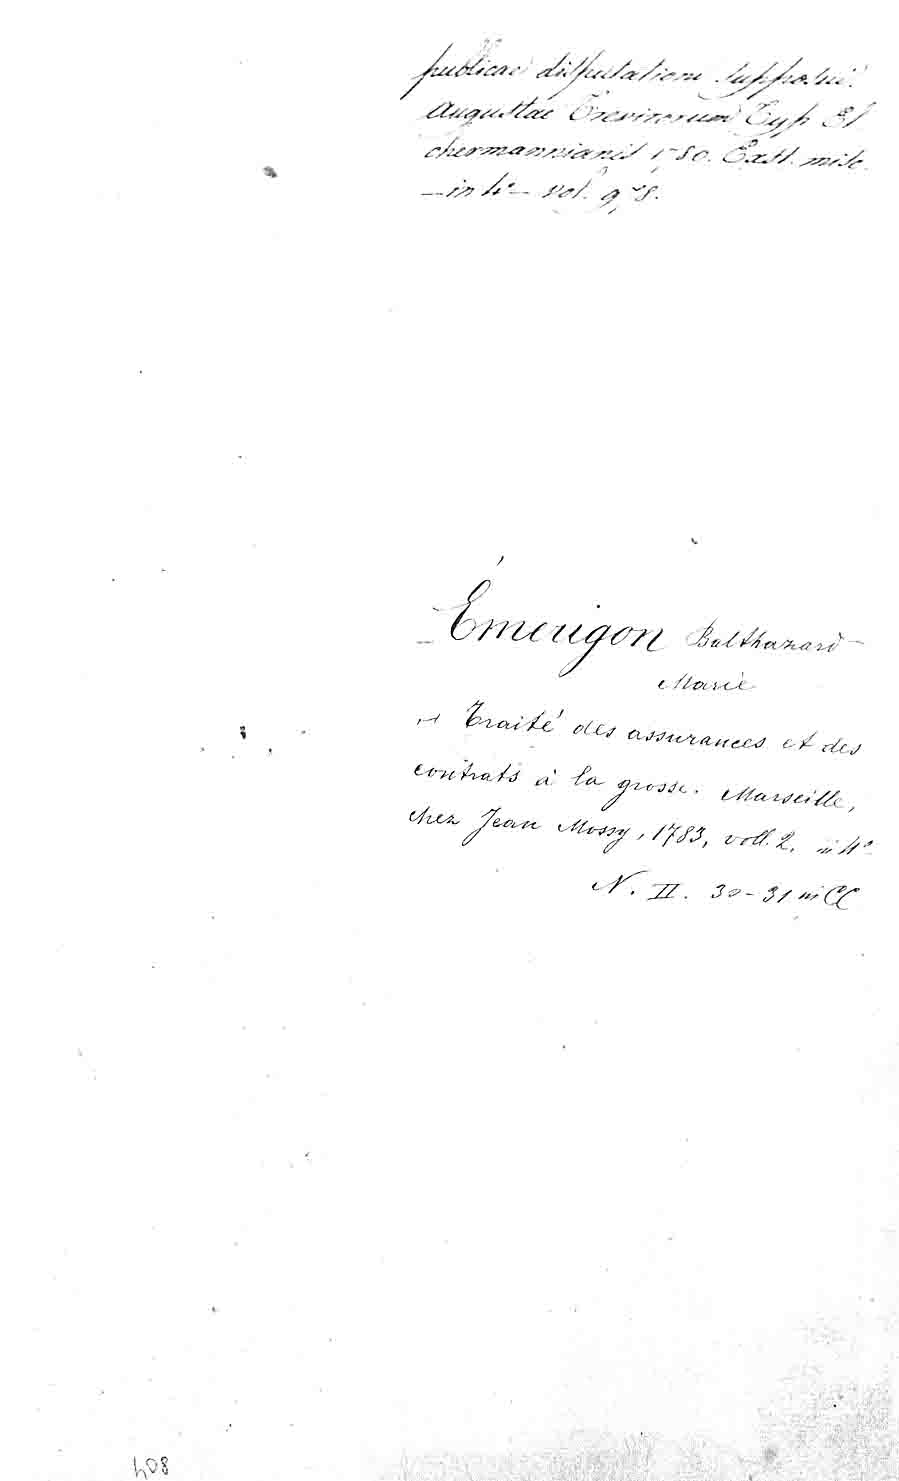 publicae disputationi supposui.
Augustae Trevirorum Typ Es
chermannianis 1780. Exst. misc.
– in 4° – vol. 978.
Émérigon Balthazard –
Marie
Traité des assurances et des
contrats à la grosse. Marseille,
chez Jean Mossy, 1783, voll. 2. in 4°
N. II. 30-31 in CC
408